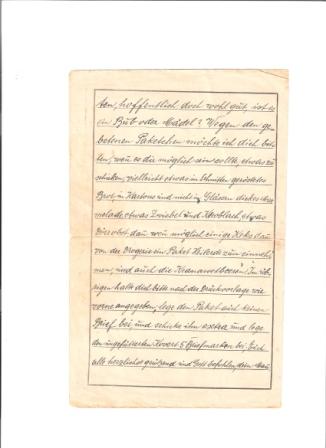 ten, hoffentlich doch wohl gut, ist es
ein Bub oder Mädel? Wegen den ge-
betenen Paketchen möchte ich dich bit-
ten, wen es dir möglich sein sollte, etwas zu
schicken, vielleicht etwas in Scheiben geröstetes
Brot, in Kartons und nicht in Gläsern dickes Mar-
melade etwas Zwiebel und Knoblach, etwas
dan wen möglich einige Keks dan
von der Drogerie ein Paket Heilerde zum einneh-
men, und auch die Kranawetbeeren! Im üb-
rigen halte dich bitte nach der Druckvorlage wie
vorne angegeben, lege dem Paket auch keinen
Brief bei, und schicke ihn extra und lege
den ungefütterten Kovert 5 Briefmarken bei. Euch
alle herzlichst grüßend und Gott befohlen, dein